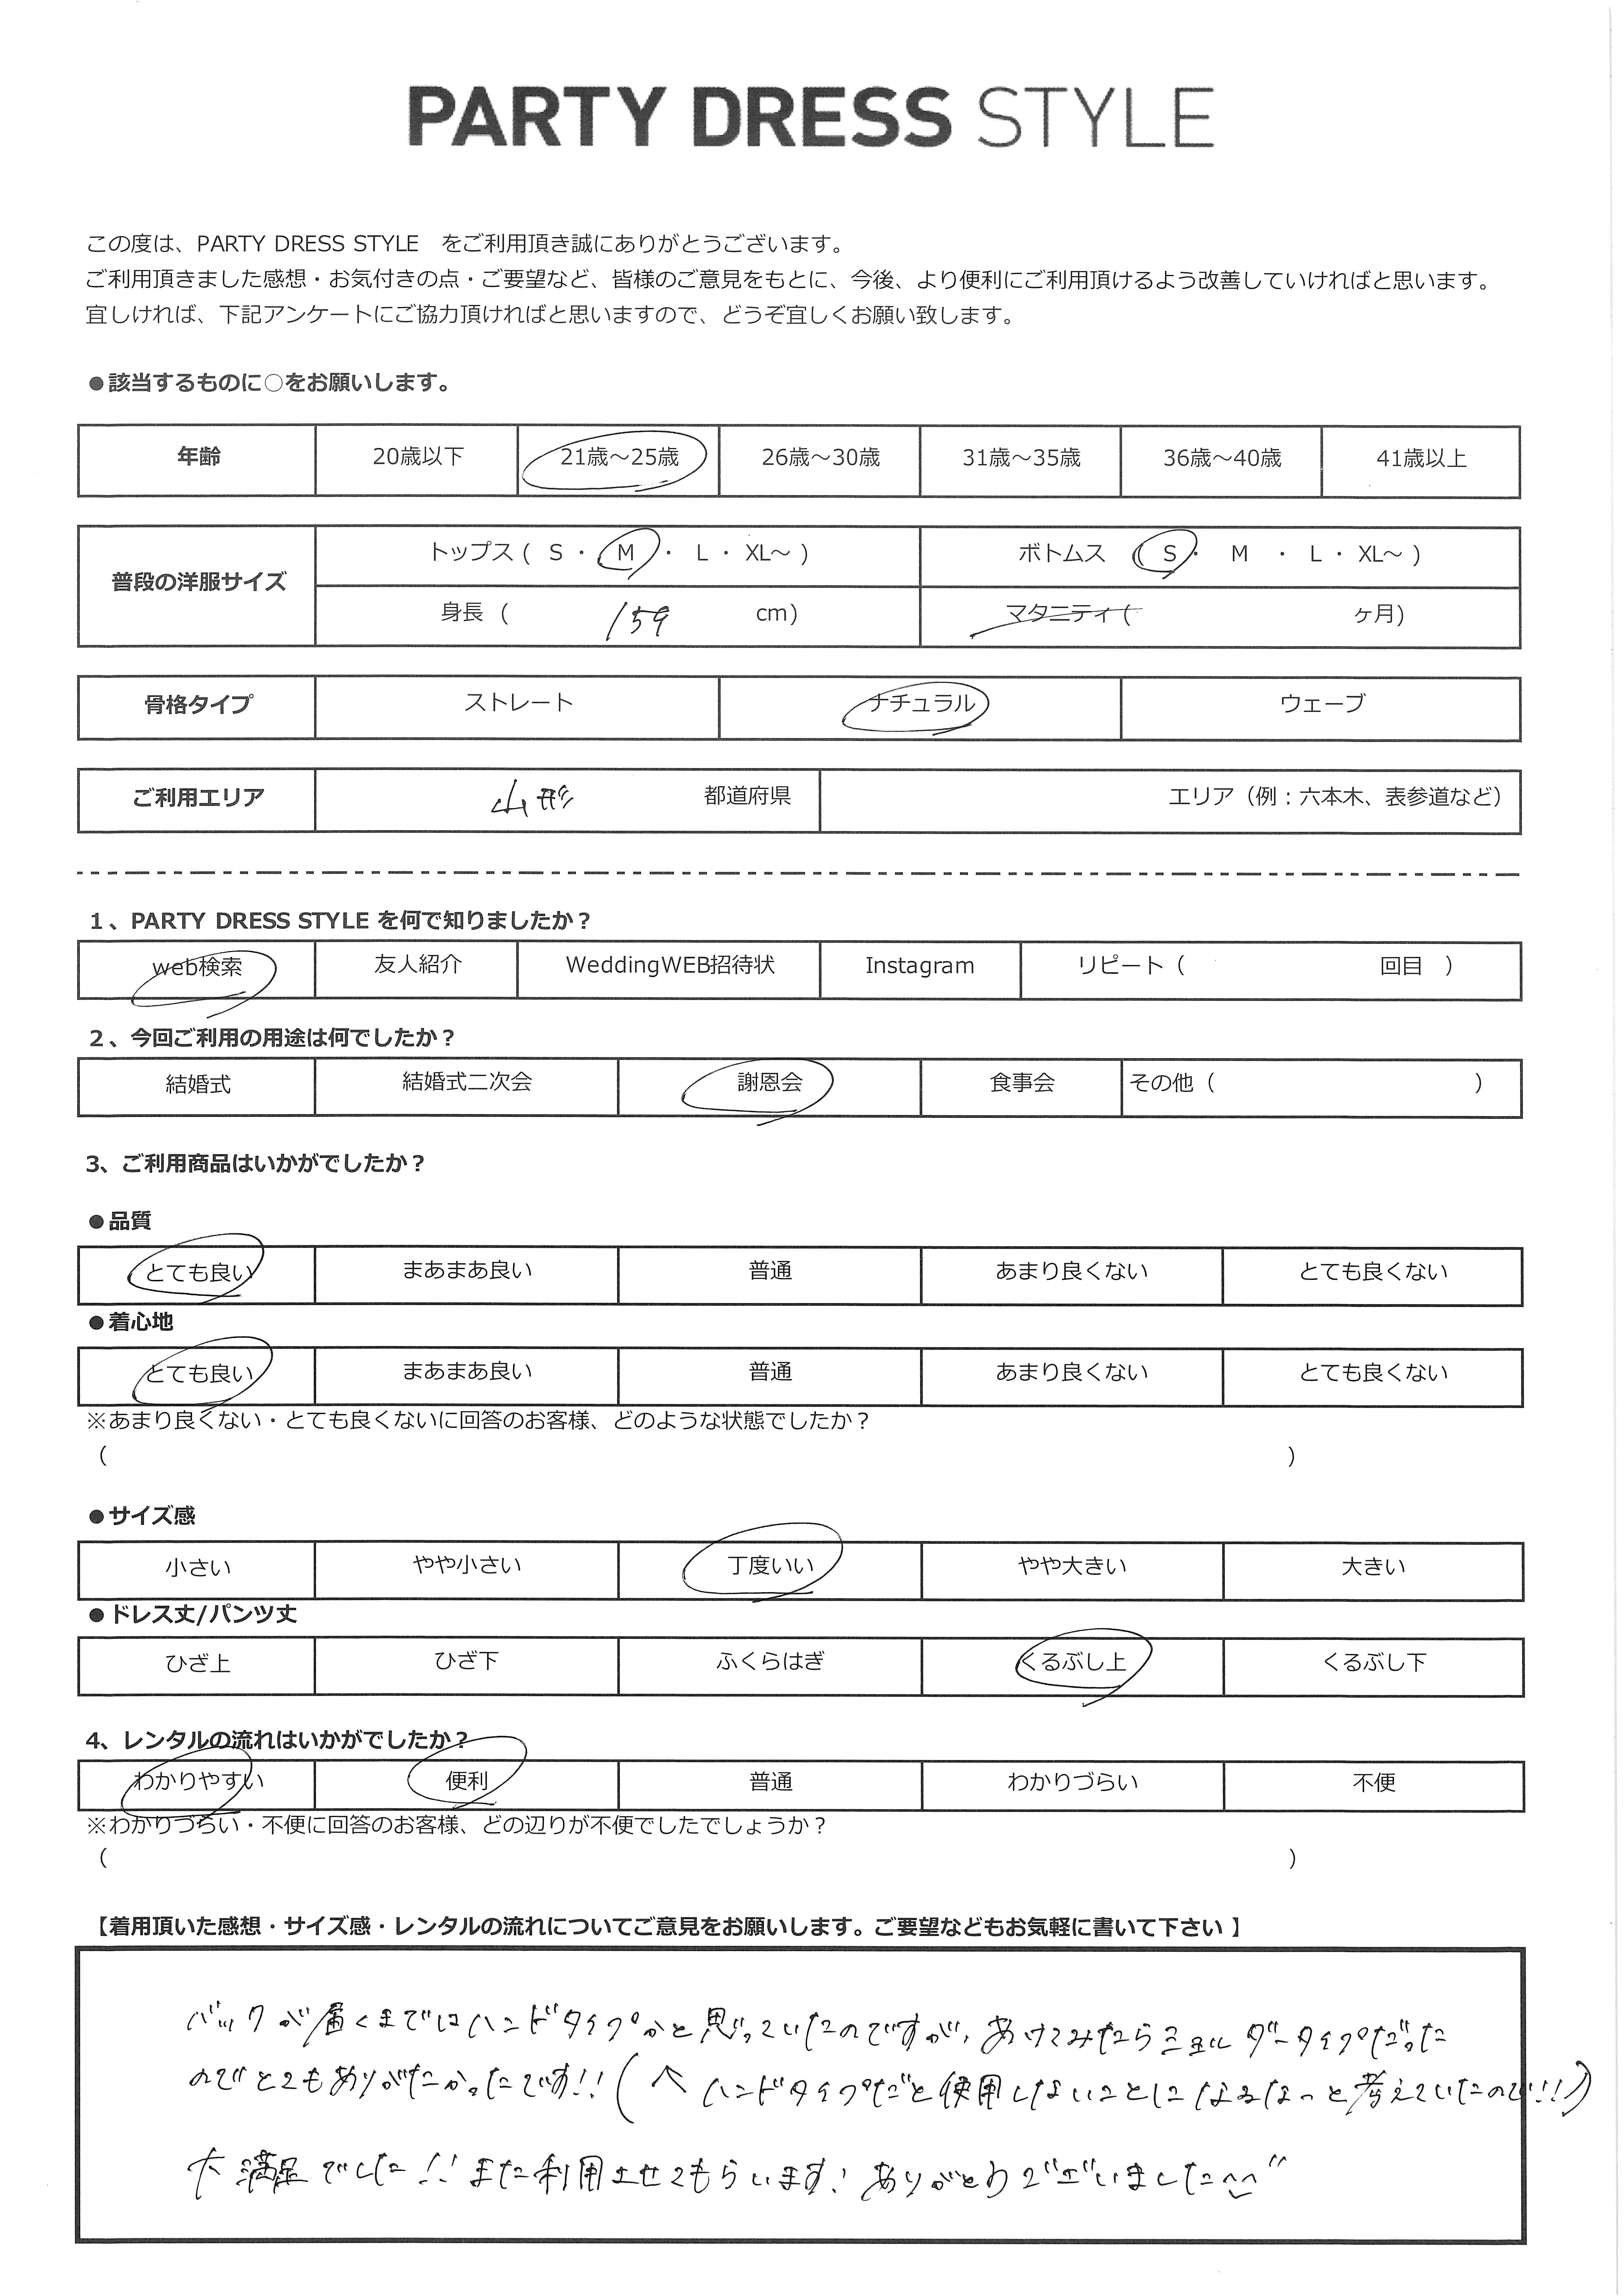 PARTY DRESS STYLE
この度は、PARTY DRESS STYLE　をご利用頂き誠にありがとうございます。
ご利用頂きました感想・お気付きの点・ご要望など、皆様のご意見をもとに、今後、より便利にご利用頂けるよう改善していければと思います。
宜しければ、下記アンケートにご協力頂ければと思いますので、どうぞ宜しくお願い致します。
●該当するものに○をお願いします。
年齢 20歳以下 21歳～25歳 26歳～30歳 31歳～35歳 36歳～40歳 41歳以上
普段の洋服サイズ トップス ( S ・ M ・ L ・ XL～ ) ボトムス ( S ・ M ・ L ・ XL～ )
身長 ( 159 cm) マタニティ ( ヶ月)
骨格タイプ ストレート ナチュラル ウェーブ
ご利用エリア 山形 都道府県 エリア（例：六本木、表参道など）
1、PARTY DRESS STYLE を何で知りましたか？
web検索 友人紹介 WeddingWEB招待状 Instagram リピート（ 回目 ）
2、今回ご利用の用途は何でしたか？
結婚式 結婚式二次会 謝恩会 食事会 その他（ ）
3、ご利用商品はいかがでしたか？
●品質
とても良い まあまあ良い 普通 あまり良くない とても良くない
●着心地
とても良い まあまあ良い 普通 あまり良くない とても良くない
※あまり良くない・とても良くないに回答のお客様、どのような状態でしたか？
（ ）
●サイズ感
小さい やや小さい 丁度いい やや大きい 大きい
●ドレス丈/パンツ丈
ひざ上 ひざ下 ふくらはぎ くるぶし上 くるぶし下
4、レンタルの流れはいかがでしたか？
わかりやすい 便利 普通 わかりづらい 不便
※わかりづらい・不便に回答のお客様、どの辺りが不便でしたでしょうか？
（ ）
【着用頂いた感想・サイズ感・レンタルの流れについてご意見をお願いします。ご要望などもお気軽に書いて下さい 】
バックが届くまではハンドタイプかと思っていたのですが、あけてみたらショルダータイプだった
のでとてもありがたかったです!!(↑ハンドタイプだと使用しないことになるなっと考えていたので!!)
大満足でした!!また利用させてもらいます!ありがとうございました^^